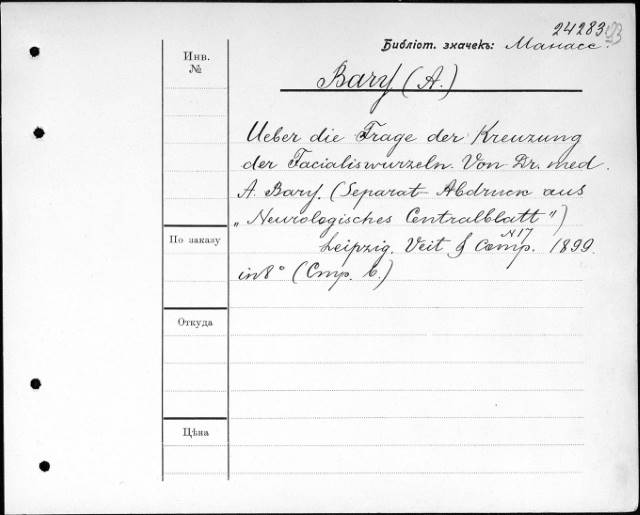 24283
Библіот. значекъ: Манасс.
Инв.
№
Bary (A.)
Ueber die Frage der Kreuzung
der Facialiswurzeln. Von Dr. med.
A. Bary. (Separat-Abdruck aus
„Neurologisches Centralblatt")
N17
Leipzig. Veit & Comp. 1899.
in 8° (Стр. 6.)
По заказу
Откуда
Цѣна